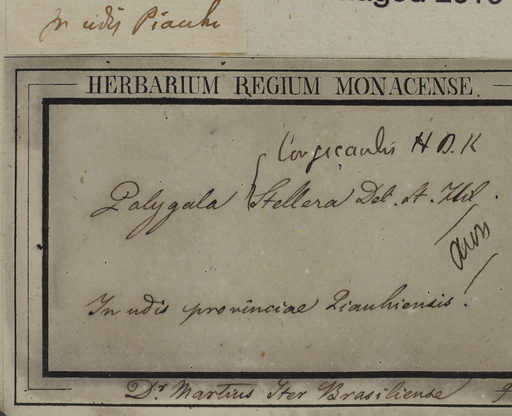 In udis Piauhi
HERBARIUM REGIUM MONACENSE.
Longicaulis H B. K
Polygala Stellera Det. St. Hil.
In udis provinciae Piauhiensis!
Dr. Martius Iter Brasiliense